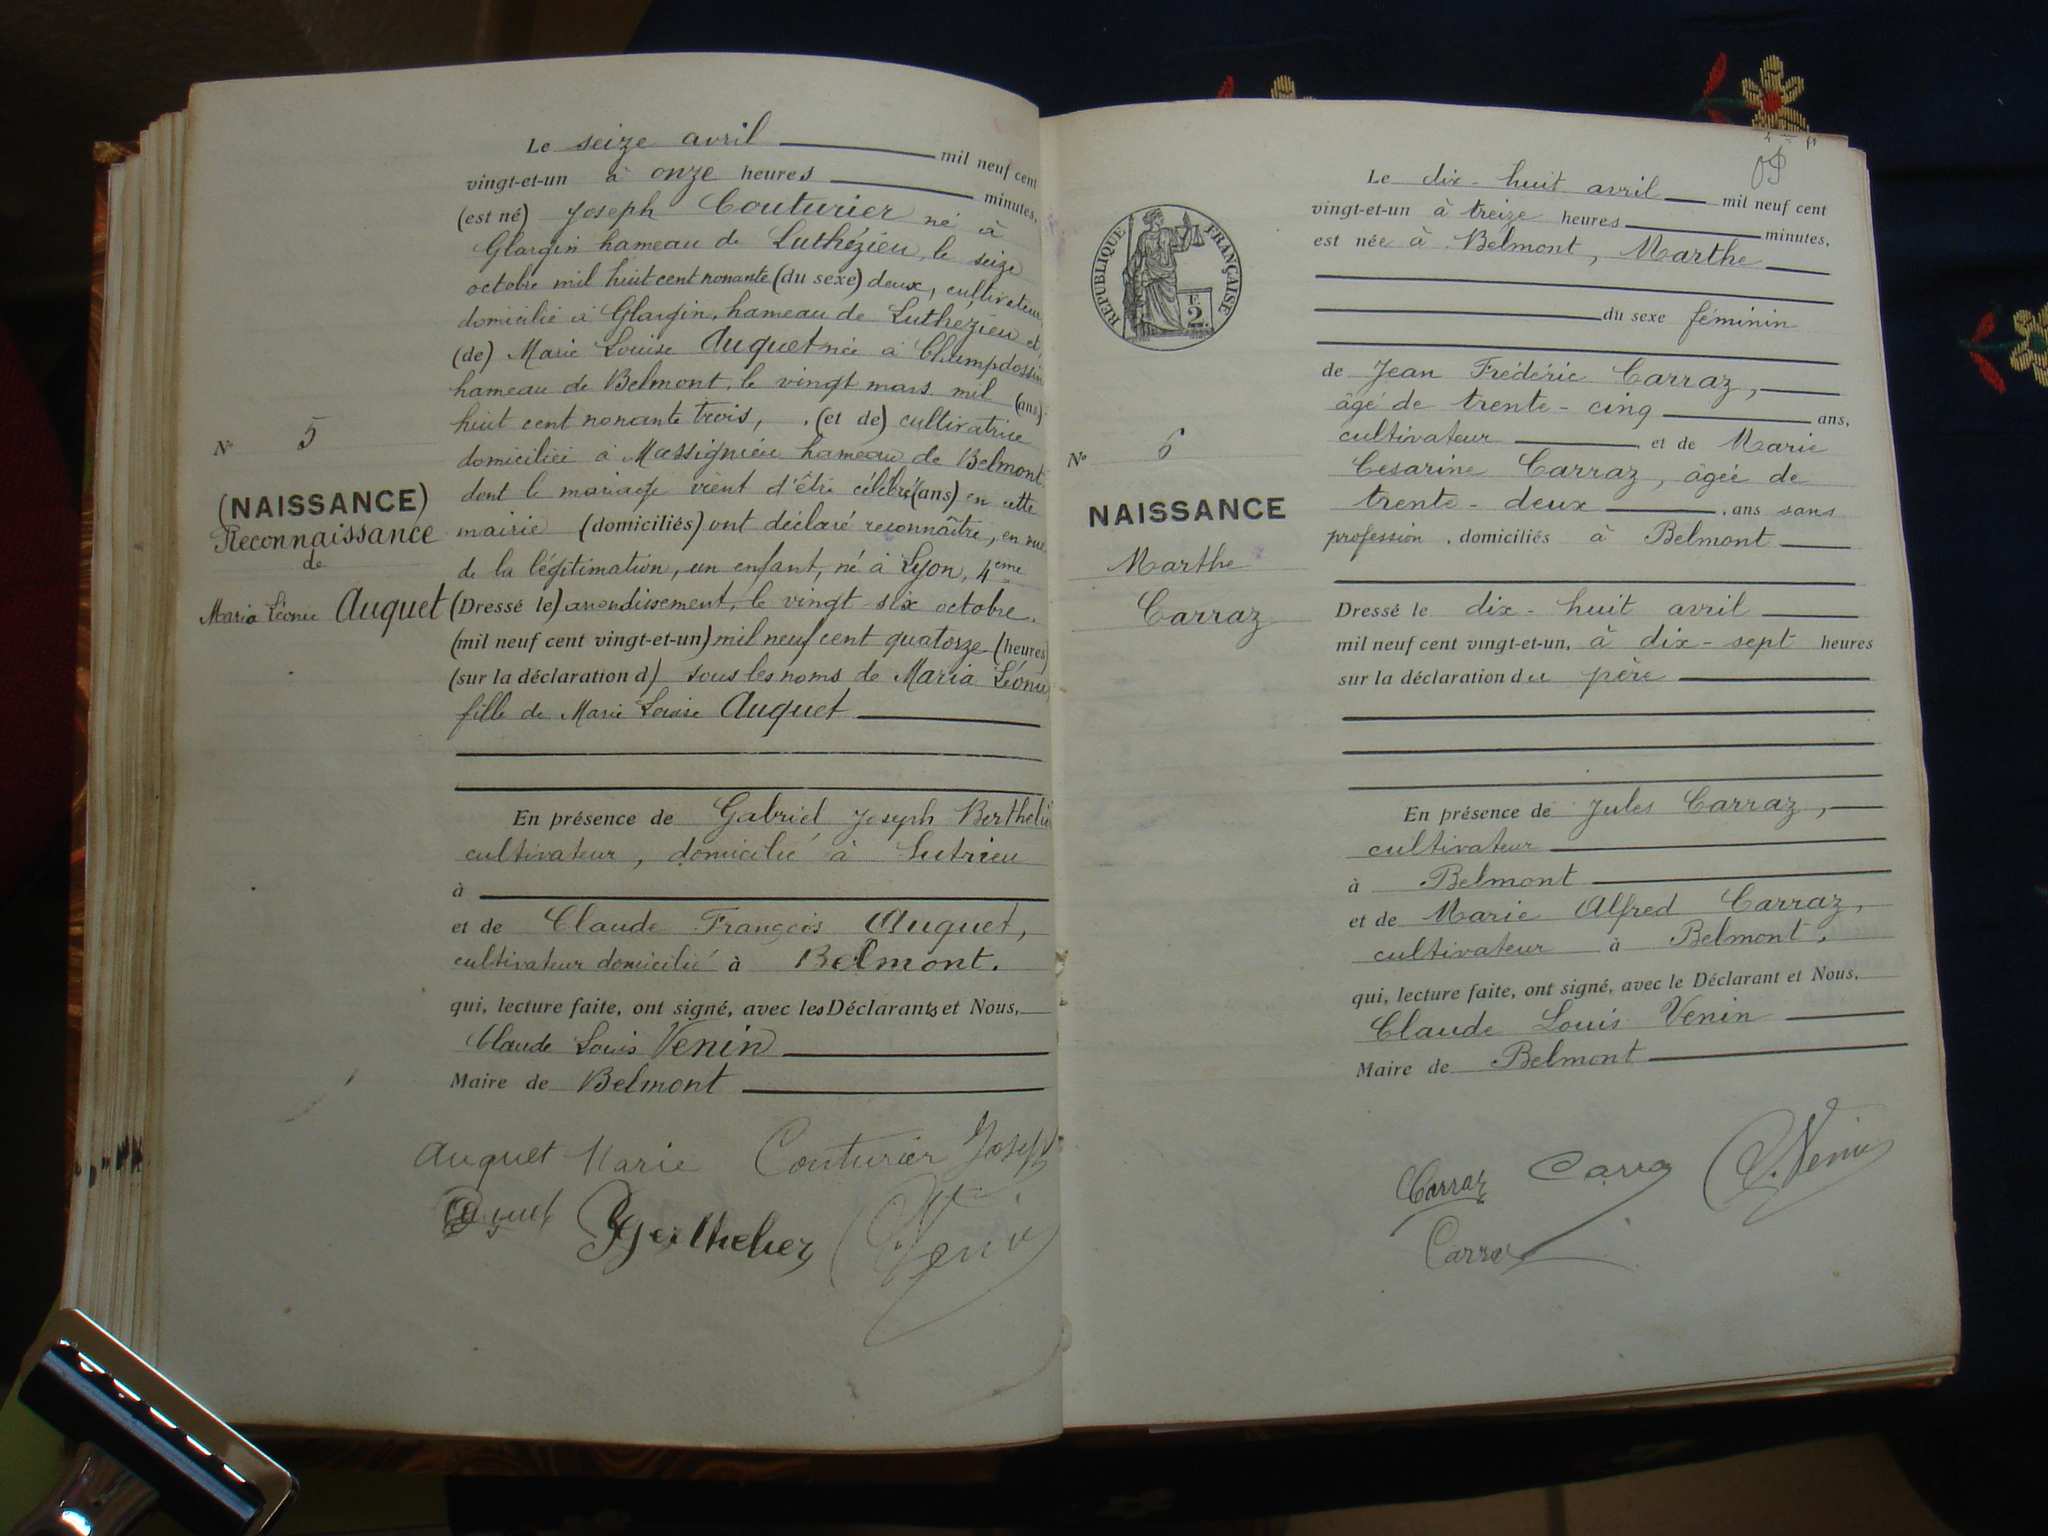 Le seize avril mil neuf cent
vingt-et-un à onze heures minutes,
(est né) Joseph Couturier né à
Glargin hameau de Luthézieu, le seize
octobre mil huit cent nonante (du sexe) deux, cultivateur,
domicilié à Glargin, hameau de Luthézieu et
(de) Marie Louise Auquet née à Champdossin
hameau de Belmont, le vingt mars mil (ans)
huit cent nonante trois, (et de) cultivatrice
domiciliée à Massignieu hameau de Belmont
dont le mariage vient d'être célébré (ans) en cette
mairie (domiciliés) ont déclaré reconnaître, en vue
de la légitimation, un enfant, né à Lyon, 4eme
(Dressé le) arrondissement, le vingt-six octobre
(mil neuf cent vingt-et-un) mil neuf cent quatorze (heures)
(sur la déclaration d) sous les noms de Maria Léonie
fille de Marie Louise Auquet
N° 5
(NAISSANCE)
Reconnaissance
de
Maria Léonie Auquet
En présence de Gabriel Joseph Berthelier
cultivateur, domicilié à Sutrieu
à
et de Claude François Auquet,
cultivateur domicilié à Belmont.
qui, lecture faite, ont signé, avec les Déclarants et Nous,
Claude Louis Venin
Maire de Belmont
Auquet Marie Couturier Joseph
Auquet Berthelier C. Venin
OP
RÉPUBLIQUE FRANÇAISE
F.
2
Le dix-huit avril mil neuf cent
vingt-et-un à treize heures minutes,
est née à Belmont, Marthe
du sexe féminin
de Jean Frédéric Carraz,
âgé de trente-cinq ans,
cultivateur et de Marie
Césarine Carraz, âgée de
trente-deux ans sans
profession, domiciliés à Belmont
N° 6
NAISSANCE
Marthe
Carraz
Dressé le dix-huit avril
mil neuf cent vingt-et-un, à dix-sept heures
sur la déclaration du père
En présence de Jules Carraz,
cultivateur
à Belmont
et de Marie Alfred Carraz,
cultivateur à Belmont,
qui, lecture faite, ont signé, avec le Déclarant et Nous,
Claude Louis Venin
Maire de Belmont
Carraz Carraz C. Venin
Carraz